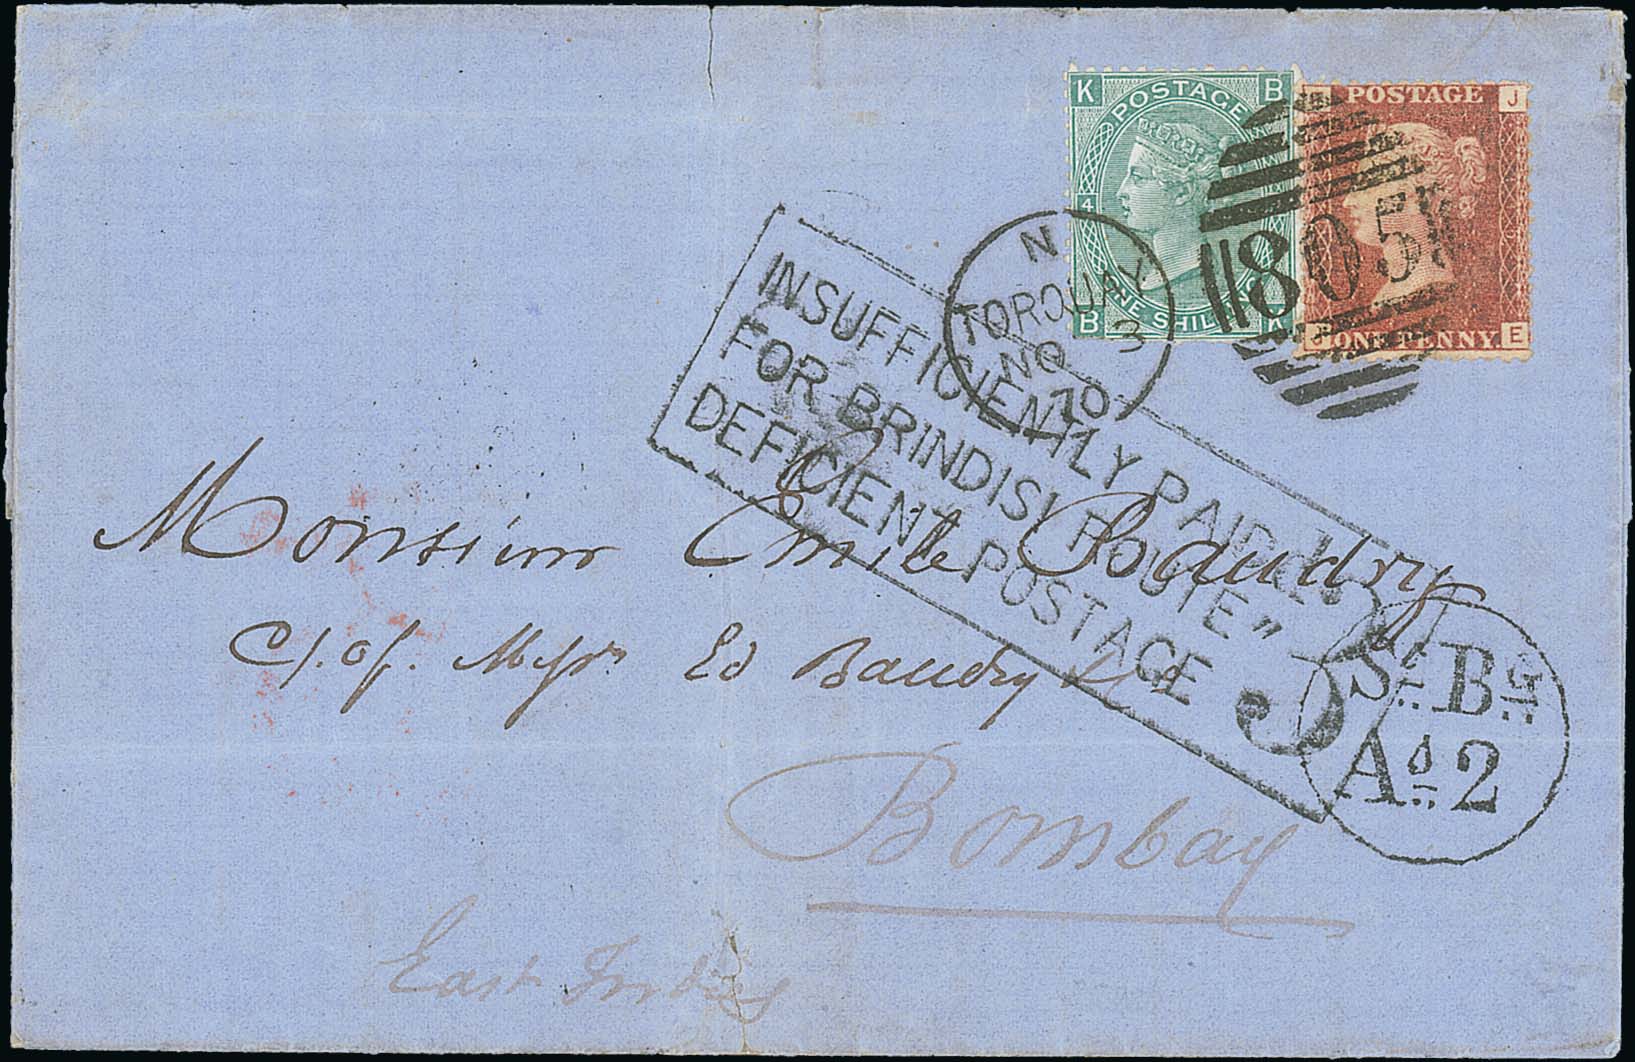 K POSTAGE B
4
B ONE SHILLING K
POSTAGE J
J ONE PENNY. E
805
N
TORQUAY
NO 3
70
INSUFFICIENTLY PAID
FOR BRINDISI ROUTE"
DEFICIENT POSTAGE
Monsieur Emile Baudry
C/. of. Messrs Ed Baudry & Co
Bombay
East Indies
Sn. Bg
An. 2